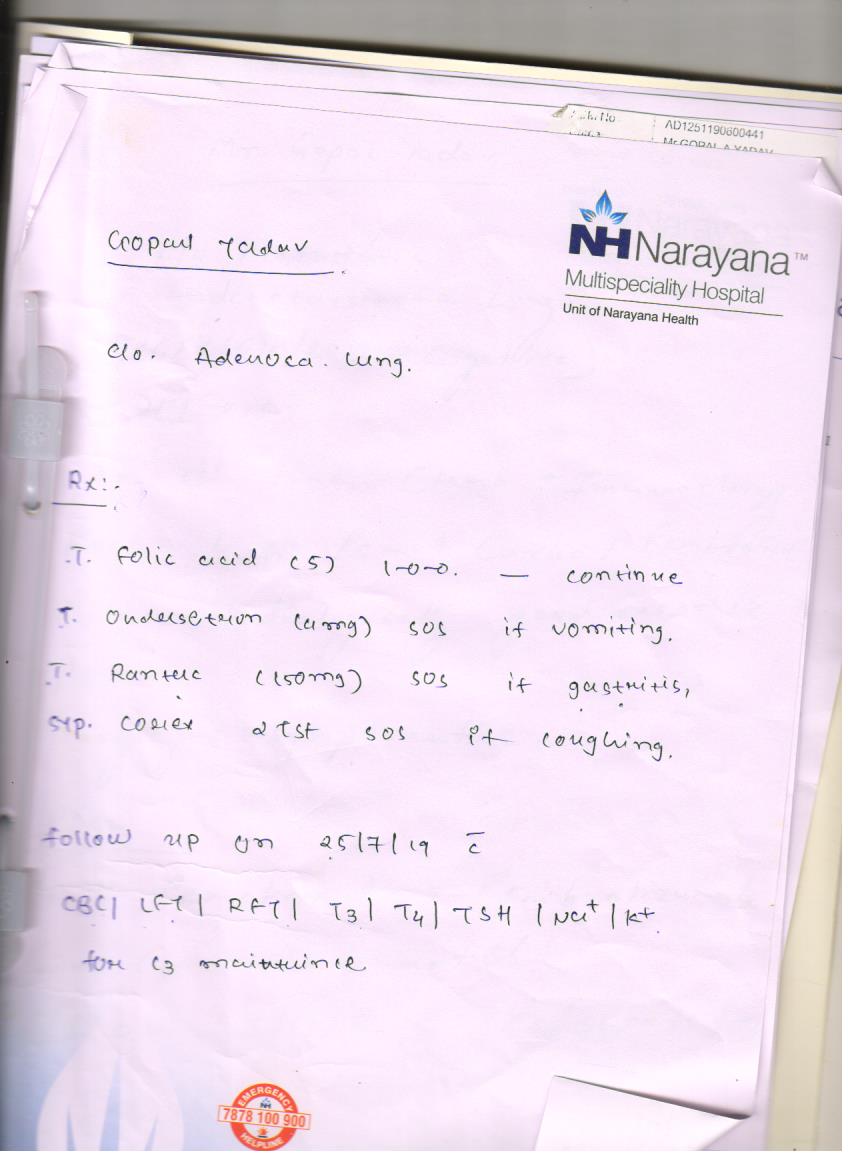 AD1251190600441
Mr GOPAL A YADAV
NH Narayana™
Multispeciality Hospital
Unit of Narayana Health
Gopal Yadav
c/o. Adenoca. lung.
Rx:-
T. folic acid (5) 1-0-0. — continue
T. Ondansetron (4mg) SOS if vomiting.
T. Rantac (150mg) SOS if gastritis,
Syp. Corex 2 TSF SOS if coughing.
follow up on 25/7/19 c̄
CBC/ LFT/ RFT/ T3/ T4/ TSH / Na+ / K+
for C3 maintaince
EMERGENCY
NH
7878 100 900
HELPLINE